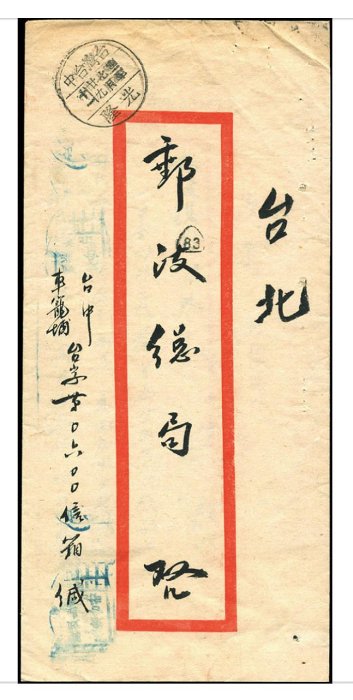 台北
郵政總局 啓
83
台中
車籠埔
台字第0六00信箱 緘
台灣台中
光隆